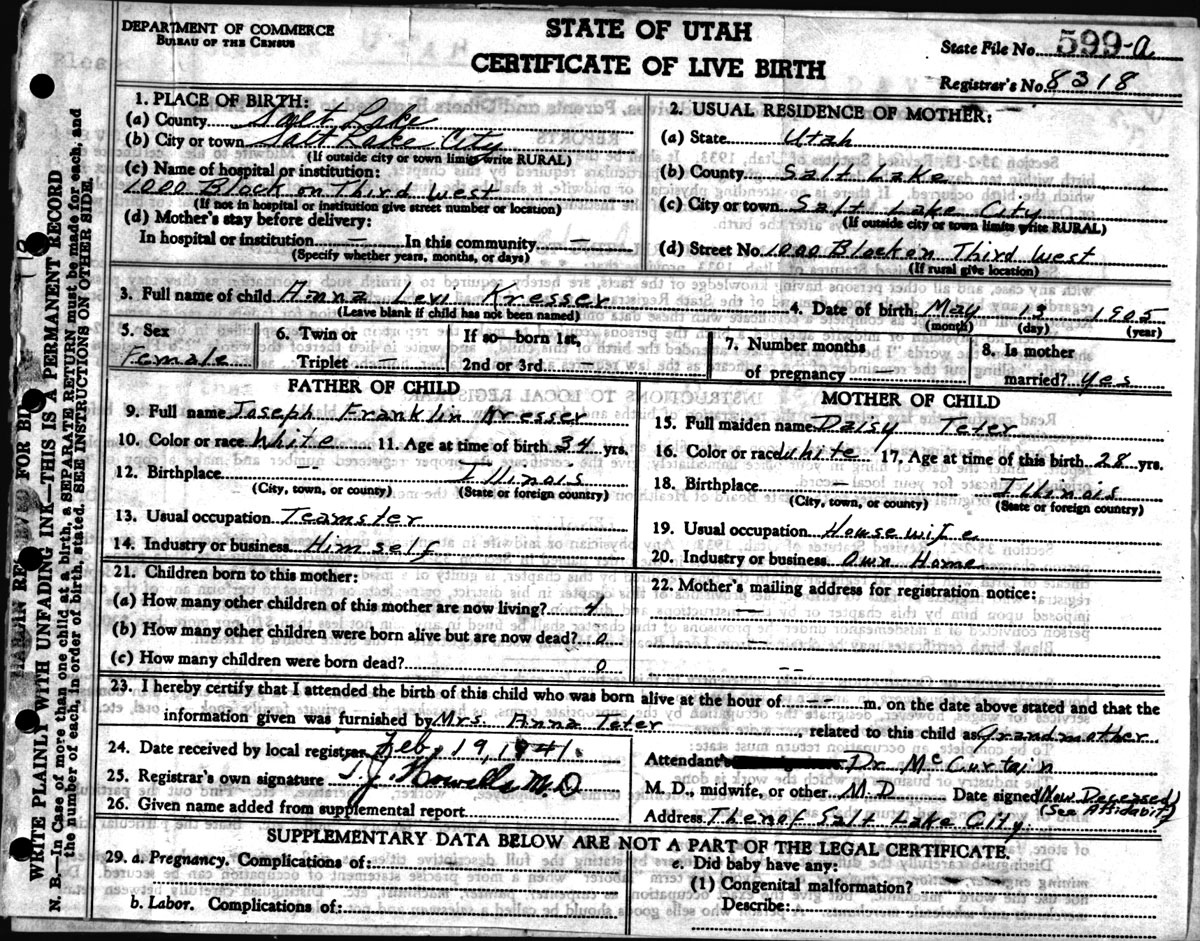 DEPARTMENT OF COMMERCE
BUREAU OF THE CENSUS
STATE OF UTAH
CERTIFICATE OF LIVE BIRTH
State File No. 599-a
Registrar's No. 8318
1. PLACE OF BIRTH:
(a) County Salt Lake
(b) City or town Salt Lake City
(If outside city or town limits write RURAL)
(c) Name of hospital or institution:
1000 Block on Third West
(If not in hospital or institution give street number or location)
(d) Mother's stay before delivery:
In hospital or institution — In this community —
(Specify whether years, months, or days)
2. USUAL RESIDENCE OF MOTHER:
(a) State Utah
(b) County Salt Lake
(c) City or town Salt Lake City
(If outside city or town limits write RURAL)
(d) Street No. 1000 Block on Third West
(If rural give location)
3. Full name of child Anna Levi Kresser
(Leave blank if child has not been named)
4. Date of birth May 13 1905
(month) (day) (year)
5. Sex
Female
6. Twin or
Triplet —
If so—born 1st,
2nd or 3rd. —
7. Number months
of pregnancy —
8. Is mother
married? Yes
FATHER OF CHILD
9. Full name Joseph Franklin Kresser
10. Color or race White 11. Age at time of birth 34 yrs.
12. Birthplace Illinois
(City, town, or county) (State or foreign country)
13. Usual occupation Teamster
14. Industry or business Himself
MOTHER OF CHILD
15. Full maiden name Daisy Teter
16. Color or race White 17. Age at time of this birth 28 yrs.
18. Birthplace — Illinois
(City, town, or county) (State or foreign country)
19. Usual occupation Housewife
20. Industry or business Own Home
21. Children born to this mother:
(a) How many other children of this mother are now living? 4
(b) How many other children were born alive but are now dead? 0
(c) How many children were born dead? 0
22. Mother's mailing address for registration notice:
—
—
--
23. I hereby certify that I attended the birth of this child who was born alive at the hour of -- m. on the date above stated and that the
information given was furnished by Mrs. Anna Teter related to this child as Grandmother
24. Date received by local registrar Feb, 19, 1941.
25. Registrar's own signature T.J. Howells M.D.
26. Given name added from supplemental report
Attendant's Dr. McCurtain
M. D., midwife, or other M.D. Date signed (Now Deceased)
(See Affidavit)
Address Then of Salt Lake City.
SUPPLEMENTARY DATA BELOW ARE NOT A PART OF THE LEGAL CERTIFICATE.
29. a. Pregnancy. Complications of: —
b. Labor. Complications of:
e. Did baby have any:
(1) Congenital malformation?
Describe:
WRITE PLAINLY WITH UNFADING INK—THIS IS A PERMANENT RECORD
N. B.—In Case of more than one child at a birth, a SEPARATE RETURN must be made for each, and
the number of each, in order of birth, stated. SEE INSTRUCTIONS ON OTHER SIDE.